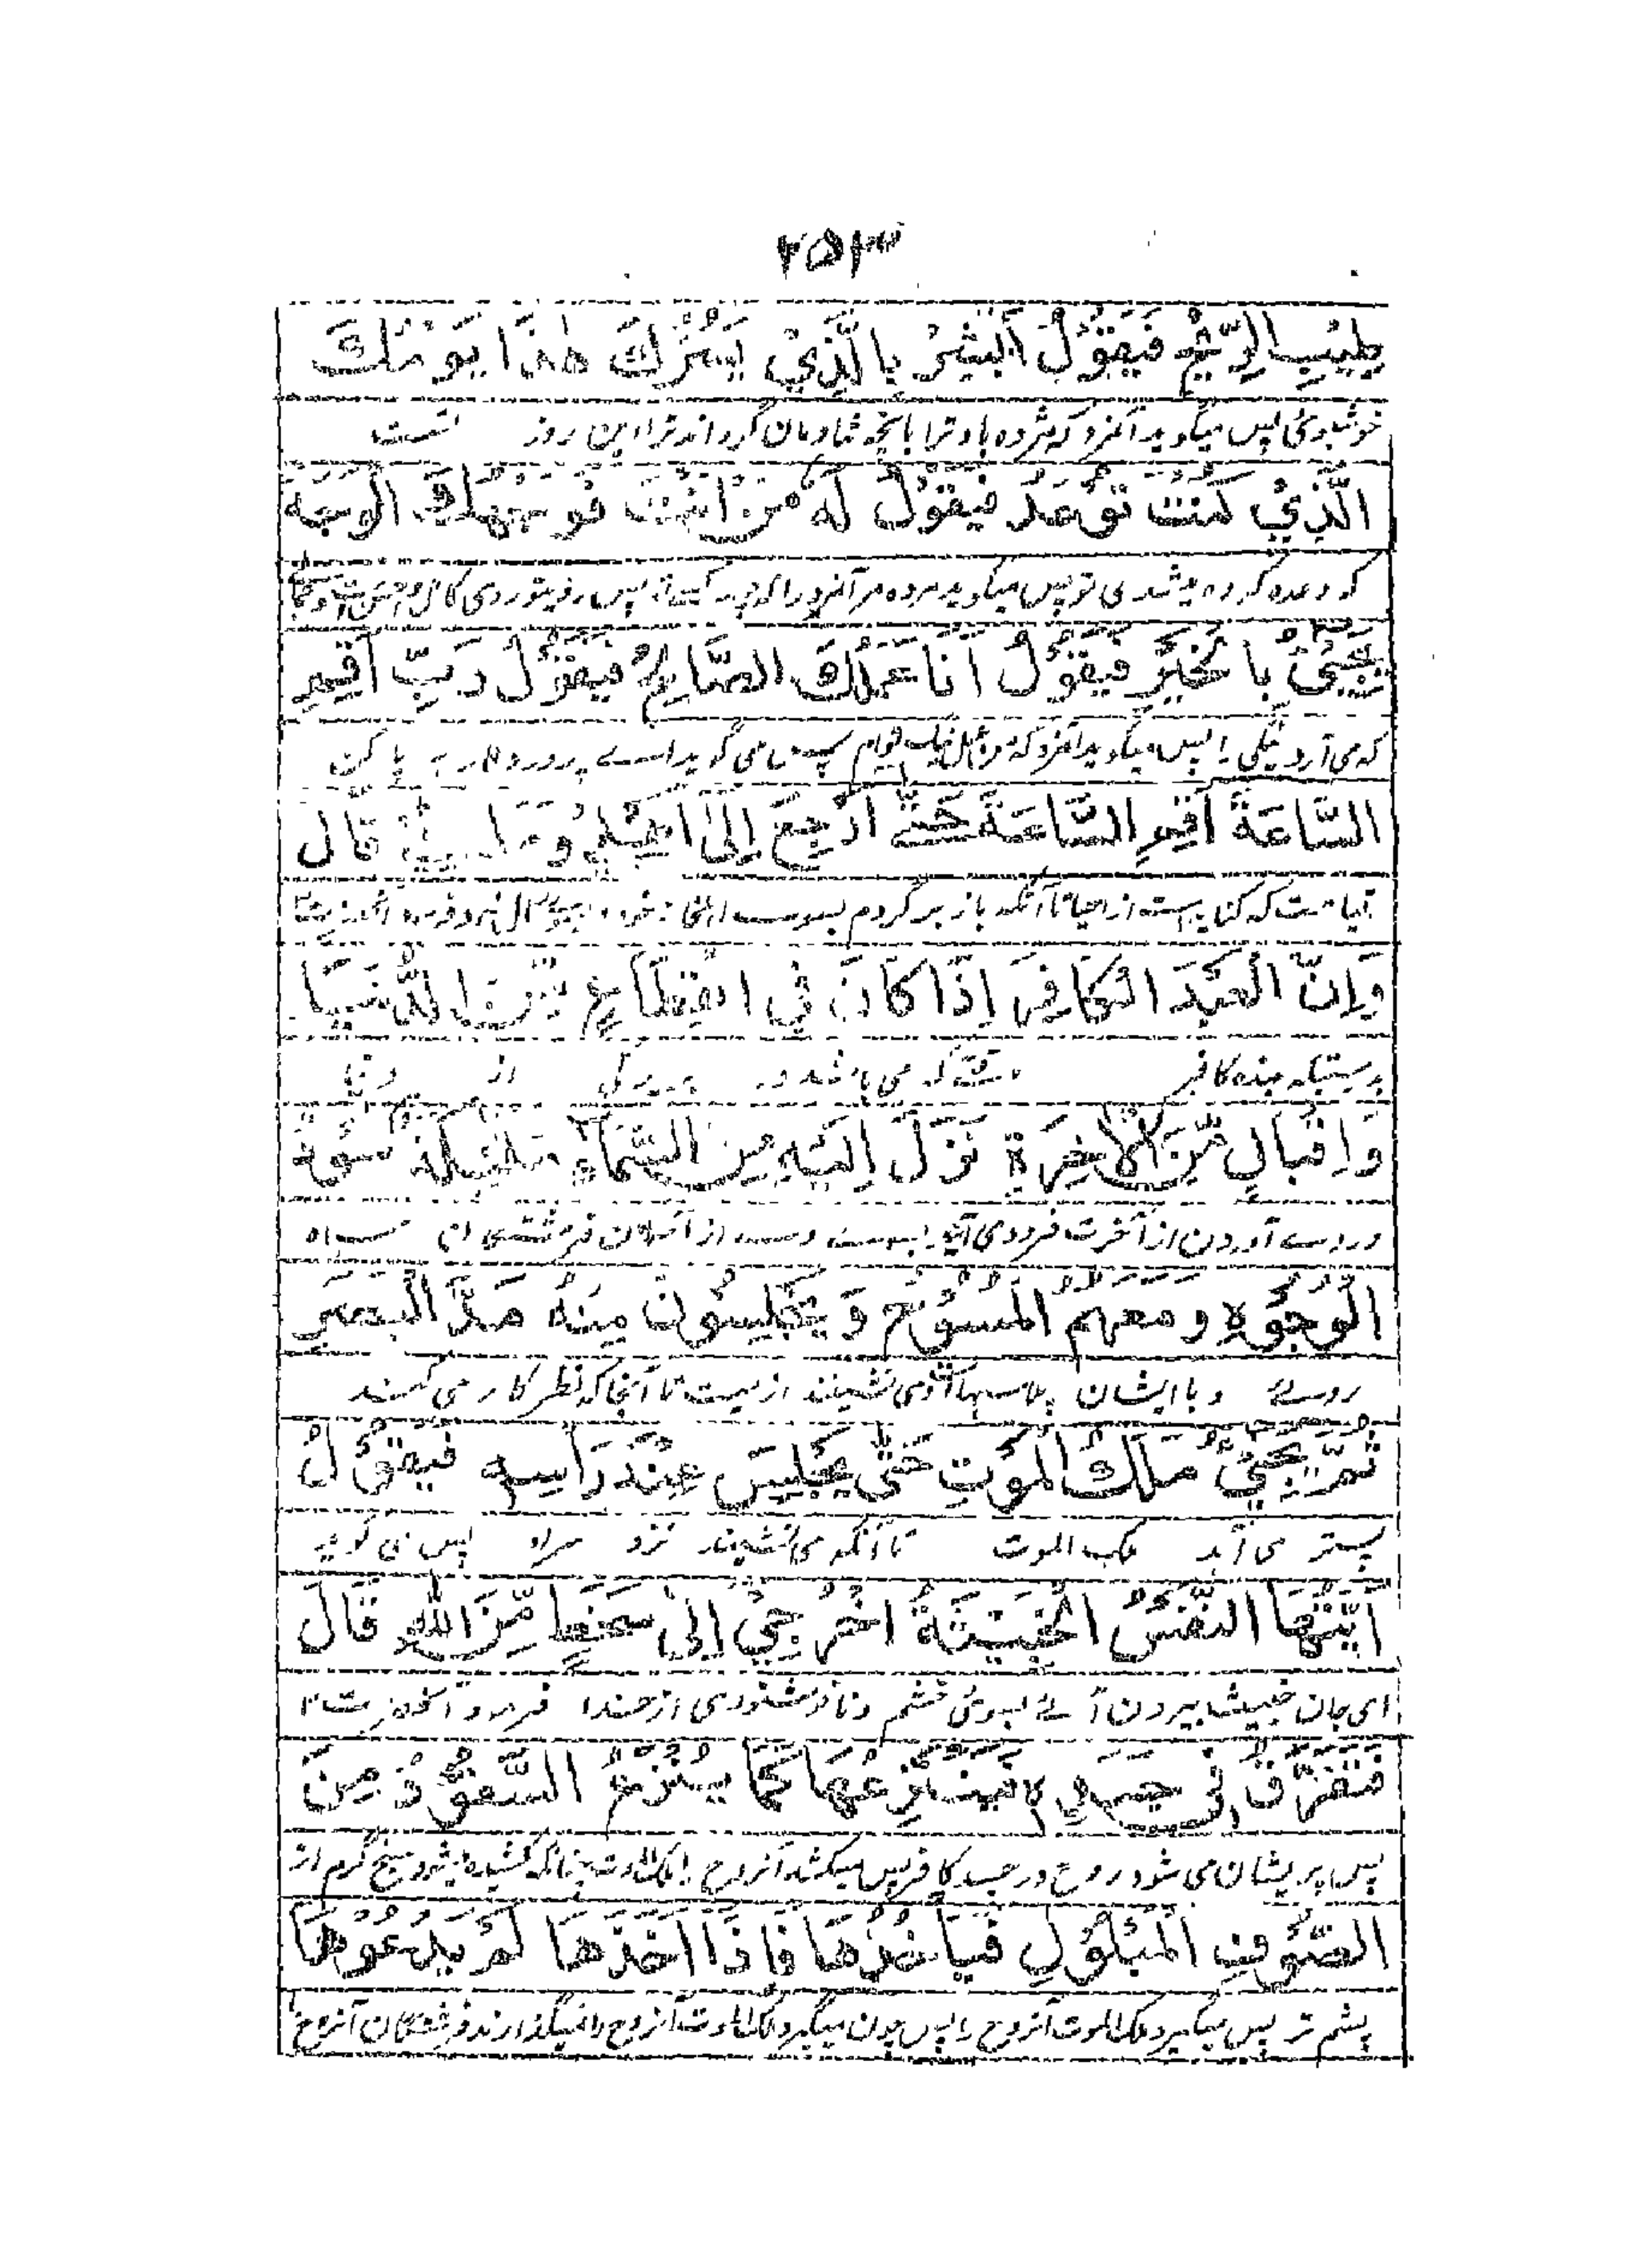 ۲۵۳
طِيْبِ الرِّيْحِ فَيَقُوْلُ اَبْشِرْ بِالَّذِيْ يَسُرُّكَ هٰذَا يَوْمُكَ
خوشبوئی پس میگوید آنمرد که مژده باد ترا بانچه شادمان گرداند ترا این روز تست
الَّذِيْ كُنْتَ تُوْعَدُ فَيَقُوْلُ لَهٗ مَنْ اَنْتَ فَوَجْهُكَ الْوَجْهُ
که وعده کرده میشدی تو پس میگوید مرده مر آنمرد را که چه کسے پس روئیتو روی کامل
يَجِيْئُ بِالْخَيْرِ فَيَقُوْلُ اَنَا عَمَلُكَ الصَّالِحُ فَيَقُوْلُ رَبِّ اَقِمِ
که می آرد نیکی را پس میگوید آنمرد که من عمل نیک توام پس می گوید اے پروردگار برپا کن
السَّاعَةَ اَقِمِ السَّاعَةَ حَتّٰى اَرْجِعَ اِلٰى اَهْلِيْ وَمَالِيْ قَالَ
قیامت که کنایہ است از احیا تا آنکه باز برگردم بسوے اہل خود و بسوے مال فرمود
وَاِنَّ الْعَبْدَ الْكَافِرَ اِذَا كَانَ فِي انْقِطَاعٍ مِّنَ الدُّنْيَا
بدرستیکه بنده کافر وقتے که می باشد در از دنیا
وَاِقْبَالٍ مِّنَ الْاٰخِرَةِ نَزَلَ اِلَيْهِ مِنَ السَّمَاءِ مَلٰئِكَةٌ سُوْدُ
و روے آوردن از آخرت فرود می آید بسوے وے از آسمان فرشتگان سیاه
الْوُجُوْهِ وَمَعَهُمُ الْمُسُوْحُ وَيَجْلِسُوْنَ مِنْهُ مَدَّ الْبَصَرِ
روے و با ایشان پلاسہا می نشینند از میت تا آنجا که نظر کار می کند
ثُمَّ يَجِيْئُ مَلَكُ الْمَوْتِ حَتّٰى يَجْلِسَ عِنْدَ رَاْسِهٖ فَيَقُوْلُ
پستر می آید ملک الموت تا آنکه می نشیند نزد سر او پس می گوید
اَيَّتُهَا النَّفْسُ الْخَبِيْثَةُ اخْرُجِيْ اِلٰى سَخَطٍ مِّنَ اللهِ قَالَ
ای جان خبیث بیرون آے بسوی خشم و ناخوشنودی از خدا فرمود آنحضرت
فَتَفَرَّقُ فِيْ جَسَدِهٖ فَيَنْتَزِعُهَا كَمَا يُنْتَزَعُ السَّفُّوْدُ مِنَ
پس پریشان می شود روح در جسد کافر پس میکشد آنروح را ملک الموت چنانکه کشیده میشود سیخ گرم از
الصُّوْفِ الْمَبْلُوْلِ فَيَاْخُذُهَا فَاِذَا اَخَذَهَا لَمْ يَدَعُوْهَا
پشم تر پس میگیرد ملک الموت آنروح را پس چون میگیرد ملک الموت آنروح را نمیگذارند فرشتگان آنروح